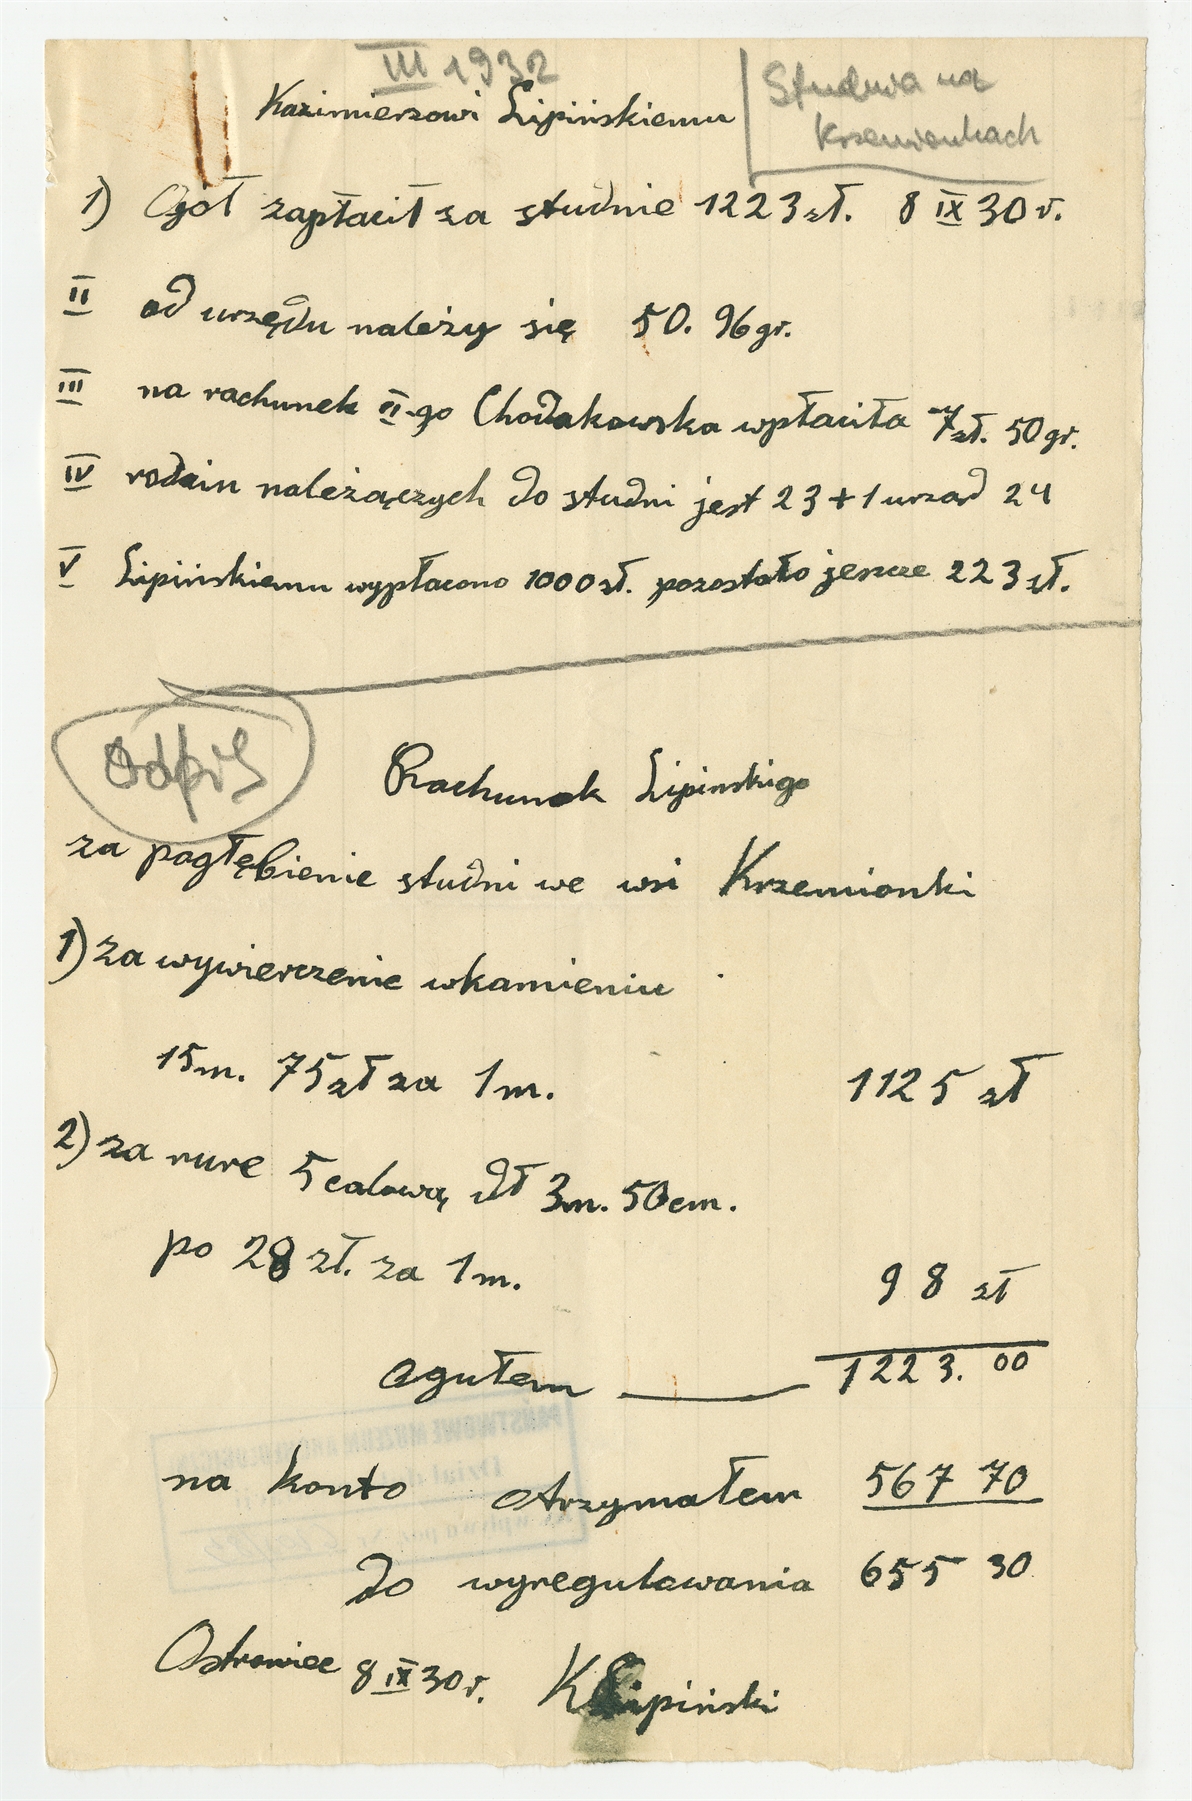 III 1932
Studnia na
Krzemionkach
Kazimierzowi Lipińskiemu
1) Ogół zapłacił za studnie 1223 zł. 8 IX 30 r.
II od urzędu należy się 50. 96 gr.
III na rachunek II-go Chodakowska wpłaciła 7 zł. 50 gr.
IV rodzin należączych do studni jest 23 + 1 urzad 24
V Lipińskiemu wypłacono 1000 zł. pozostało jeszcze 223 zł.
Odpis
Rachunek Lipinskigo
za pogłębienie studni we wsi Krzemionki
1) za wywierczenie wkamieniu
15 m. 75 zł za 1 m. 1125 zł
2) za rure 5 calową dł 3 m. 50 cm.
po 28 zł. za 1 m. 98 zł
ogułem 1223. 00
na konto otrzymałem 567 70
do wyregulowania 655 30
Ostrowiec 8 IX 30 r. K Lipiński